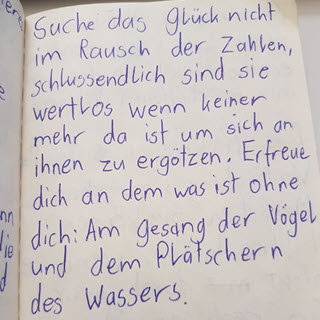 Suche das Glück nicht
im Rausch der Zahlen,
schlussendlich sind sie
wertlos wenn keiner
mehr da ist um sich an
ihnen zu ergötzen. Erfreue
dich an dem was ist ohne
dich: Am Gesang der Vögel
und dem Plätschern
des Wassers.